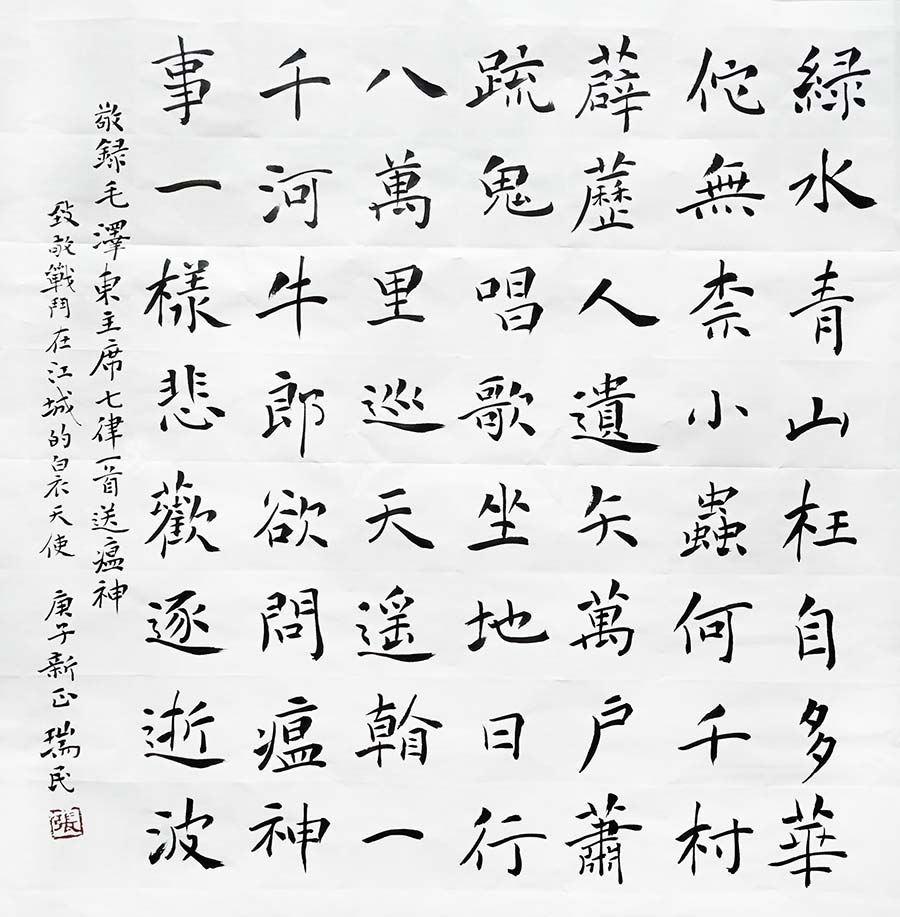 緑水青山枉自多華
佗無柰小蟲何千村
薜藶人遺矢萬户蕭
疏鬼唱歌坐地日行
八萬里巡天遥看一
千河牛郎欲問瘟神
事一樣悲歡逐逝波
敬録毛澤東主席七律一首送瘟神
致敬戰鬥在江城的白衣天使 庚子新正 瑞民
張